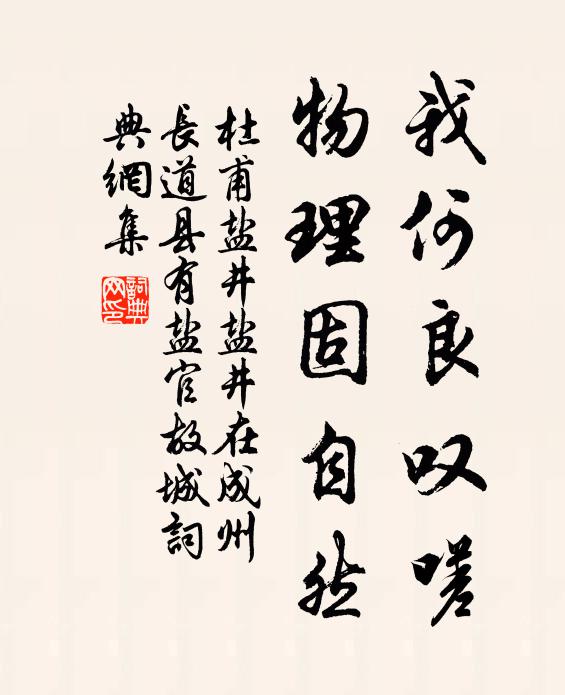 我何良叹嗟
物理固自然
杜甫盐井盐井在成州
长道县有盐官故城詞
典網集
詞典网印